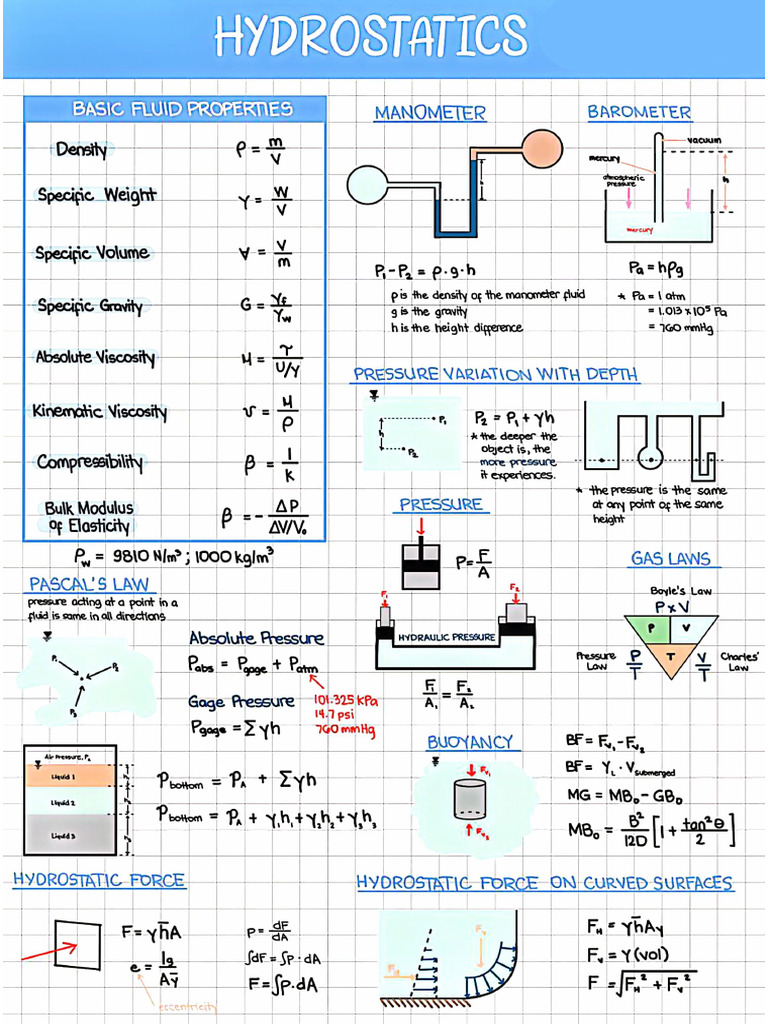 HYDROSTATICS
BASIC FLUID PROPERTIES
Density ρ = m/V
Specific Weight γ = W/V
Specific Volume ∀ = V/m
Specific Gravity G = γf/γw
Absolute Viscosity μ = τ/(U/y)
Kinematic Viscosity ν = μ/ρ
Compressibility β = 1/K
Bulk Modulus
of Elasticity β = - ΔP/(ΔV/V₀)
ρw = 9810 N/m³ ; 1000 kg/m³
MANOMETER
h
P₁ - P₂ = ρ · g · h
ρ is the density of the manometer fluid
g is the gravity
h is the height difference
BAROMETER
vacuum
mercury
atmospheric
pressure
h
mercury
Pa = hρg
* Pa = 1 atm
= 1.013 x 10⁵ Pa
= 760 mmHg
PRESSURE VARIATION WITH DEPTH
P₁
h
P₂
P₂ = P₁ + γh
* the deeper the
object is, the
more pressure
it experiences.
* the pressure is the same
at any point of the same
height
PRESSURE
P = F/A
F₁
F₂
HYDRAULIC PRESSURE
F₁/A₁ = F₂/A₂
GAS LAWS
Boyle's Law
P x V
P V
T
Pressure
Law
P/T
V/T
Charles'
Law
PASCAL'S LAW
pressure acting at a point in a
fluid is same in all directions
P₁
P₂
P₃
Absolute Pressure
Pabs = Pgage + Patm
Gage Pressure
Pgage = Σγh
101.325 kPa
14.7 psi
760 mmHg
Air Pressure, PA
Liquid 1
Liquid 2
Liquid 3
Pbottom = PA + Σγh
Pbottom = PA + γ₁h₁ + γ₂h₂ + γ₃h₃
BUOYANCY
Fv₁
Fv₂
BF = Fv₁ - Fv₂
BF = γL · Vsubmerged
MG = MB₀ - GB₀
MB₀ = B²/12D [1 + tan²θ/2]
HYDROSTATIC FORCE
F = γh̄A
e = Ig/Aȳ
eccentricity
P = dF/dA
∫dF = ∫P · dA
F = ∫P · dA
HYDROSTATIC FORCE ON CURVED SURFACES
FH
Fv
FH = γh̄Ay
Fv = γ(vol)
F = √(FH² + Fv²)